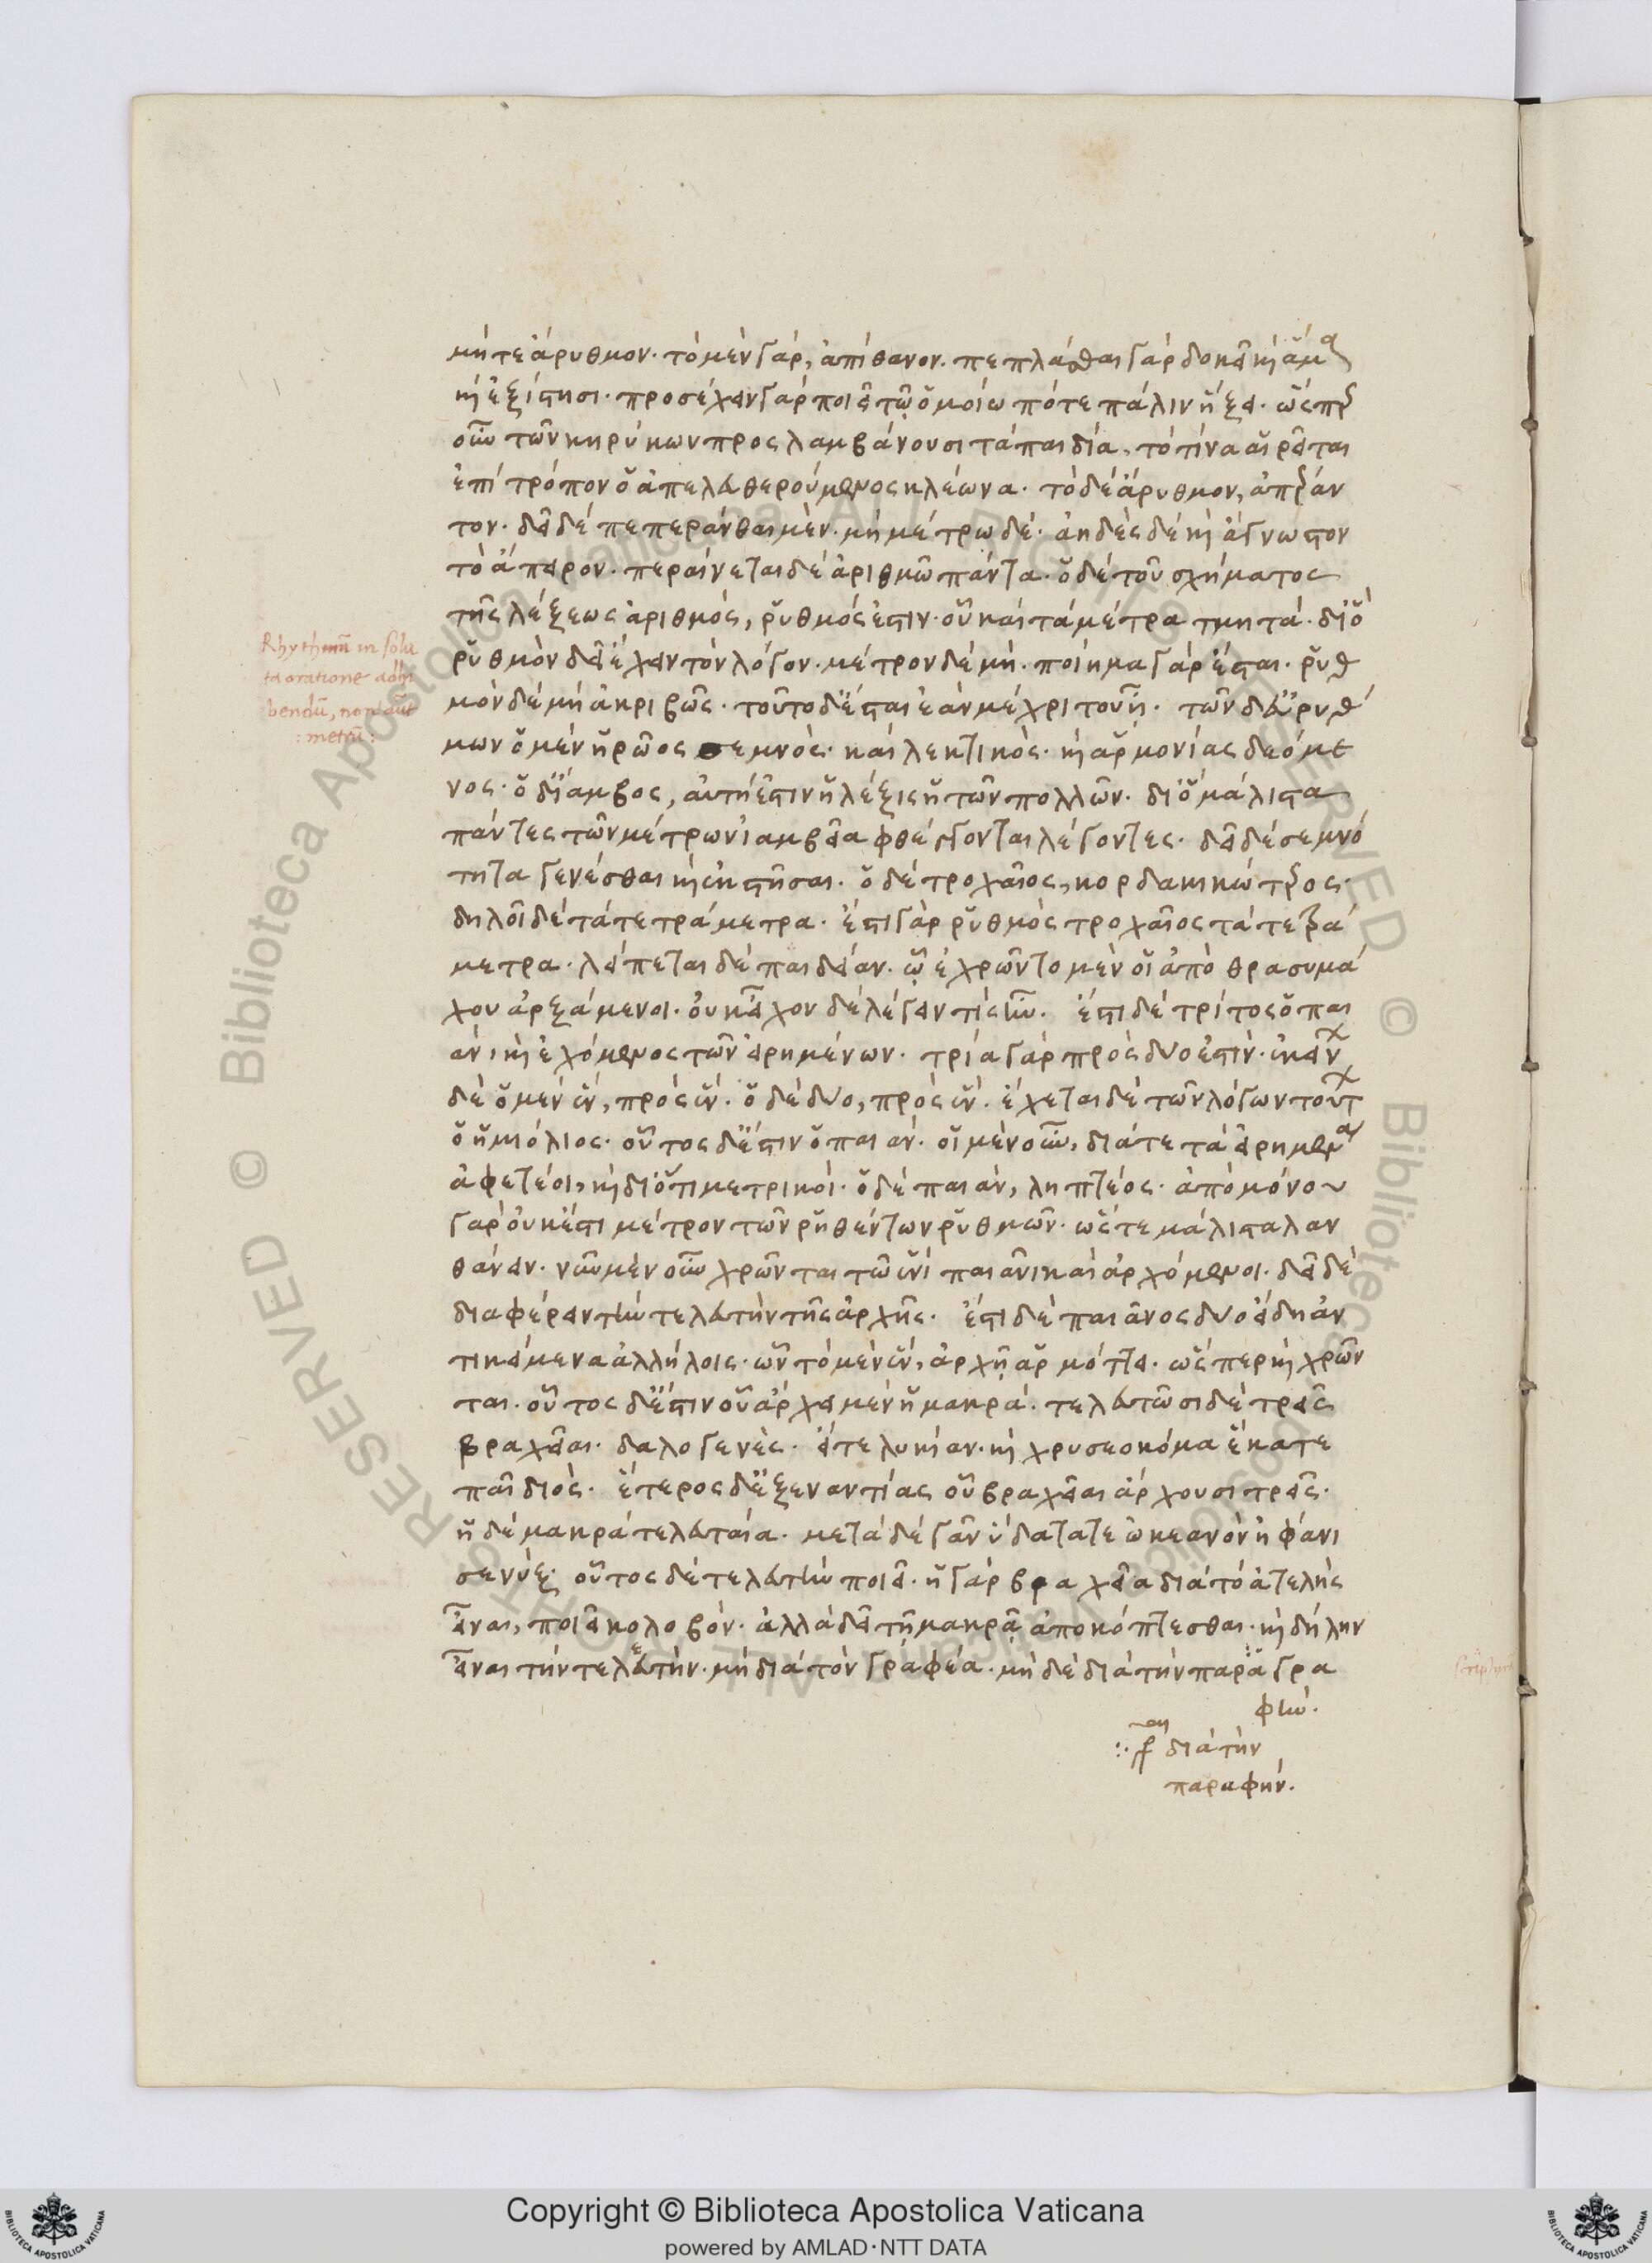 μήτε ἄρυθμον· τὸ μὲν γὰρ, ἀπίθανον· πεπλάσθαι γὰρ δοκεῖ καὶ ἅμα
καὶ ἐξίστησι· προσέχειν γὰρ ποιεῖ τῷ ὁμοίω πότε πάλιν ἥξει· ὥσπερ
οὖν τῶν κηρύκων προσλαμβάνουσι τὰ παιδία, τὸ τίνα αἱρεῖται
ἐπίτροπον ὁ ἀπελευθερούμενος κλέωνα· τὸ δὲ ἄρυθμον, ἀπέραν
τον· δεῖ δὲ πεπεράνθαι μὲν· μὴ μέτρω δέ· ἀηδὲς δὲ καὶ ἄγνωστον
τὸ ἄπειρον· περαίνεται δὲ ἀριθμῶ πάντα· ὁ δὲ τοῦ σχήματος
τῆς λέξεως ἀριθμὸς, ῥυθμός ἐστιν· οὗ καὶ τὰ μέτρα τμητά· διὸ
ῥυθμὸν δεῖ ἔχειν τὸν λόγον· μέτρον δὲ μὴ· ποίημα γὰρ ἔσται· ῥυθ
μὸν δὲ μὴ ἀκριβῶς· τοῦτο δὲ ἔσται ἐὰν μέχρι του ᾖ· τῶν δὲ ῥυθ
μων ὁ μὲν ἡρῶος σεμνὸς· καὶ λεκτικὸς· καὶ ἁρμονίας δεόμε
νος· ὁ δ' ἴαμβος, αὐτή ἐστιν ἡ λέξις ἡ τῶν πολλῶν· διὸ μάλιστα
πάντες τῶν μέτρων ἰαμβεῖα φθέγγονται λέγοντες· δεῖ δὲ σεμνό
τητα γενέσθαι καὶ ἐκστῆσαι· ὁ δὲ τροχαῖος, κορδακικώτερος·
δηλοῖ δὲ τὰ τετράμετρα· ἔστι γὰρ ῥυθμὸς τροχαῖος τὰ τετρά
μετρα· λείπεται δὲ παιδείαν· ᾧ ἐχρῶντο μὲν οἱ ἀπὸ θρασυμά
χου ἀρξάμενοι· οὐκ εἶχον δὲ λέγειν τίς ἦν· ἔστι δὲ τρίτος ὁ παι
άν, καὶ ἐχόμενος τῶν εἰρημένων· τρία γὰρ πρὸς δύο ἐστίν· ἐκείνων
δὲ ὁ μὲν ἓν, πρὸς ἕν· ὁ δὲ δύο, πρὸς ἕν· ἔχεται δὲ τῶν λόγων τούτων
ὁ ἡμιόλιος· οὗτος δ' ἐστὶν ὁ παιάν· οἱ μὲν οὖν, διά τε τὰ εἰρημένα
ἀφετέοι, καὶ διότι μετρικοί· ὁ δὲ παιάν, ληπτέος· ἀπὸ μόνου
γὰρ οὐκ ἔστι μέτρον τῶν ῥηθέντων ῥυθμῶν· ὥστε μάλιστα λαν
θάνειν· νῦν μὲν οὖν χρῶνται τῶ ἑνὶ παιᾶνι καὶ ἀρχόμενοι· δεῖ δὲ
διαφέρειν τὴν τελευτὴν τῆς ἀρχῆς· ἔστι δὲ παιᾶνος δύο εἴδη ἀν
τικείμενα ἀλλήλοις· ὧν τὸ μὲν ἓν, ἀρχῇ ἁρμόττει· ὥσπερ καὶ χρῶν
ται· οὗτος δ' ἐστὶν οὗ ἄρχει μὲν ἡ μακρά· τελευτῶσι δὲ τρεῖς
βραχεῖαι· δαλογενὲς· εἴτε λυκίαν· καὶ χρυσεοκόμα ἕκατε
παῖ διός· ἕτερος δ' ἐξ ἐναντίας οὗ βραχεῖαι ἄρχουσι τρεῖς·
ἡ δὲ μακρὰ τελευταία· μετὰ δὲ γᾶν ὕδατά τε ὠκεανὸν ἠφάνι
σε νύξ· οὗτος δὲ τελευτὴν ποιεῖ· ἡ γὰρ βραχεῖα διὰ τὸ ἀτελὴς
εἶναι, ποιεῖ κολοβόν· ἀλλὰ δεῖ τῇ μακρᾷ ἀποκόπτεσθαι· καὶ δήλην
εἶναι τὴν τελευτήν· μὴ διὰ τὸν γραφέα· μὴ δὲ διὰ τὴν παρα γρα
φὴν·
διὰ τὴν
παραφήν.
Rhythmū in solu
ta oratione adhi
bendū, non autē
: metrū :